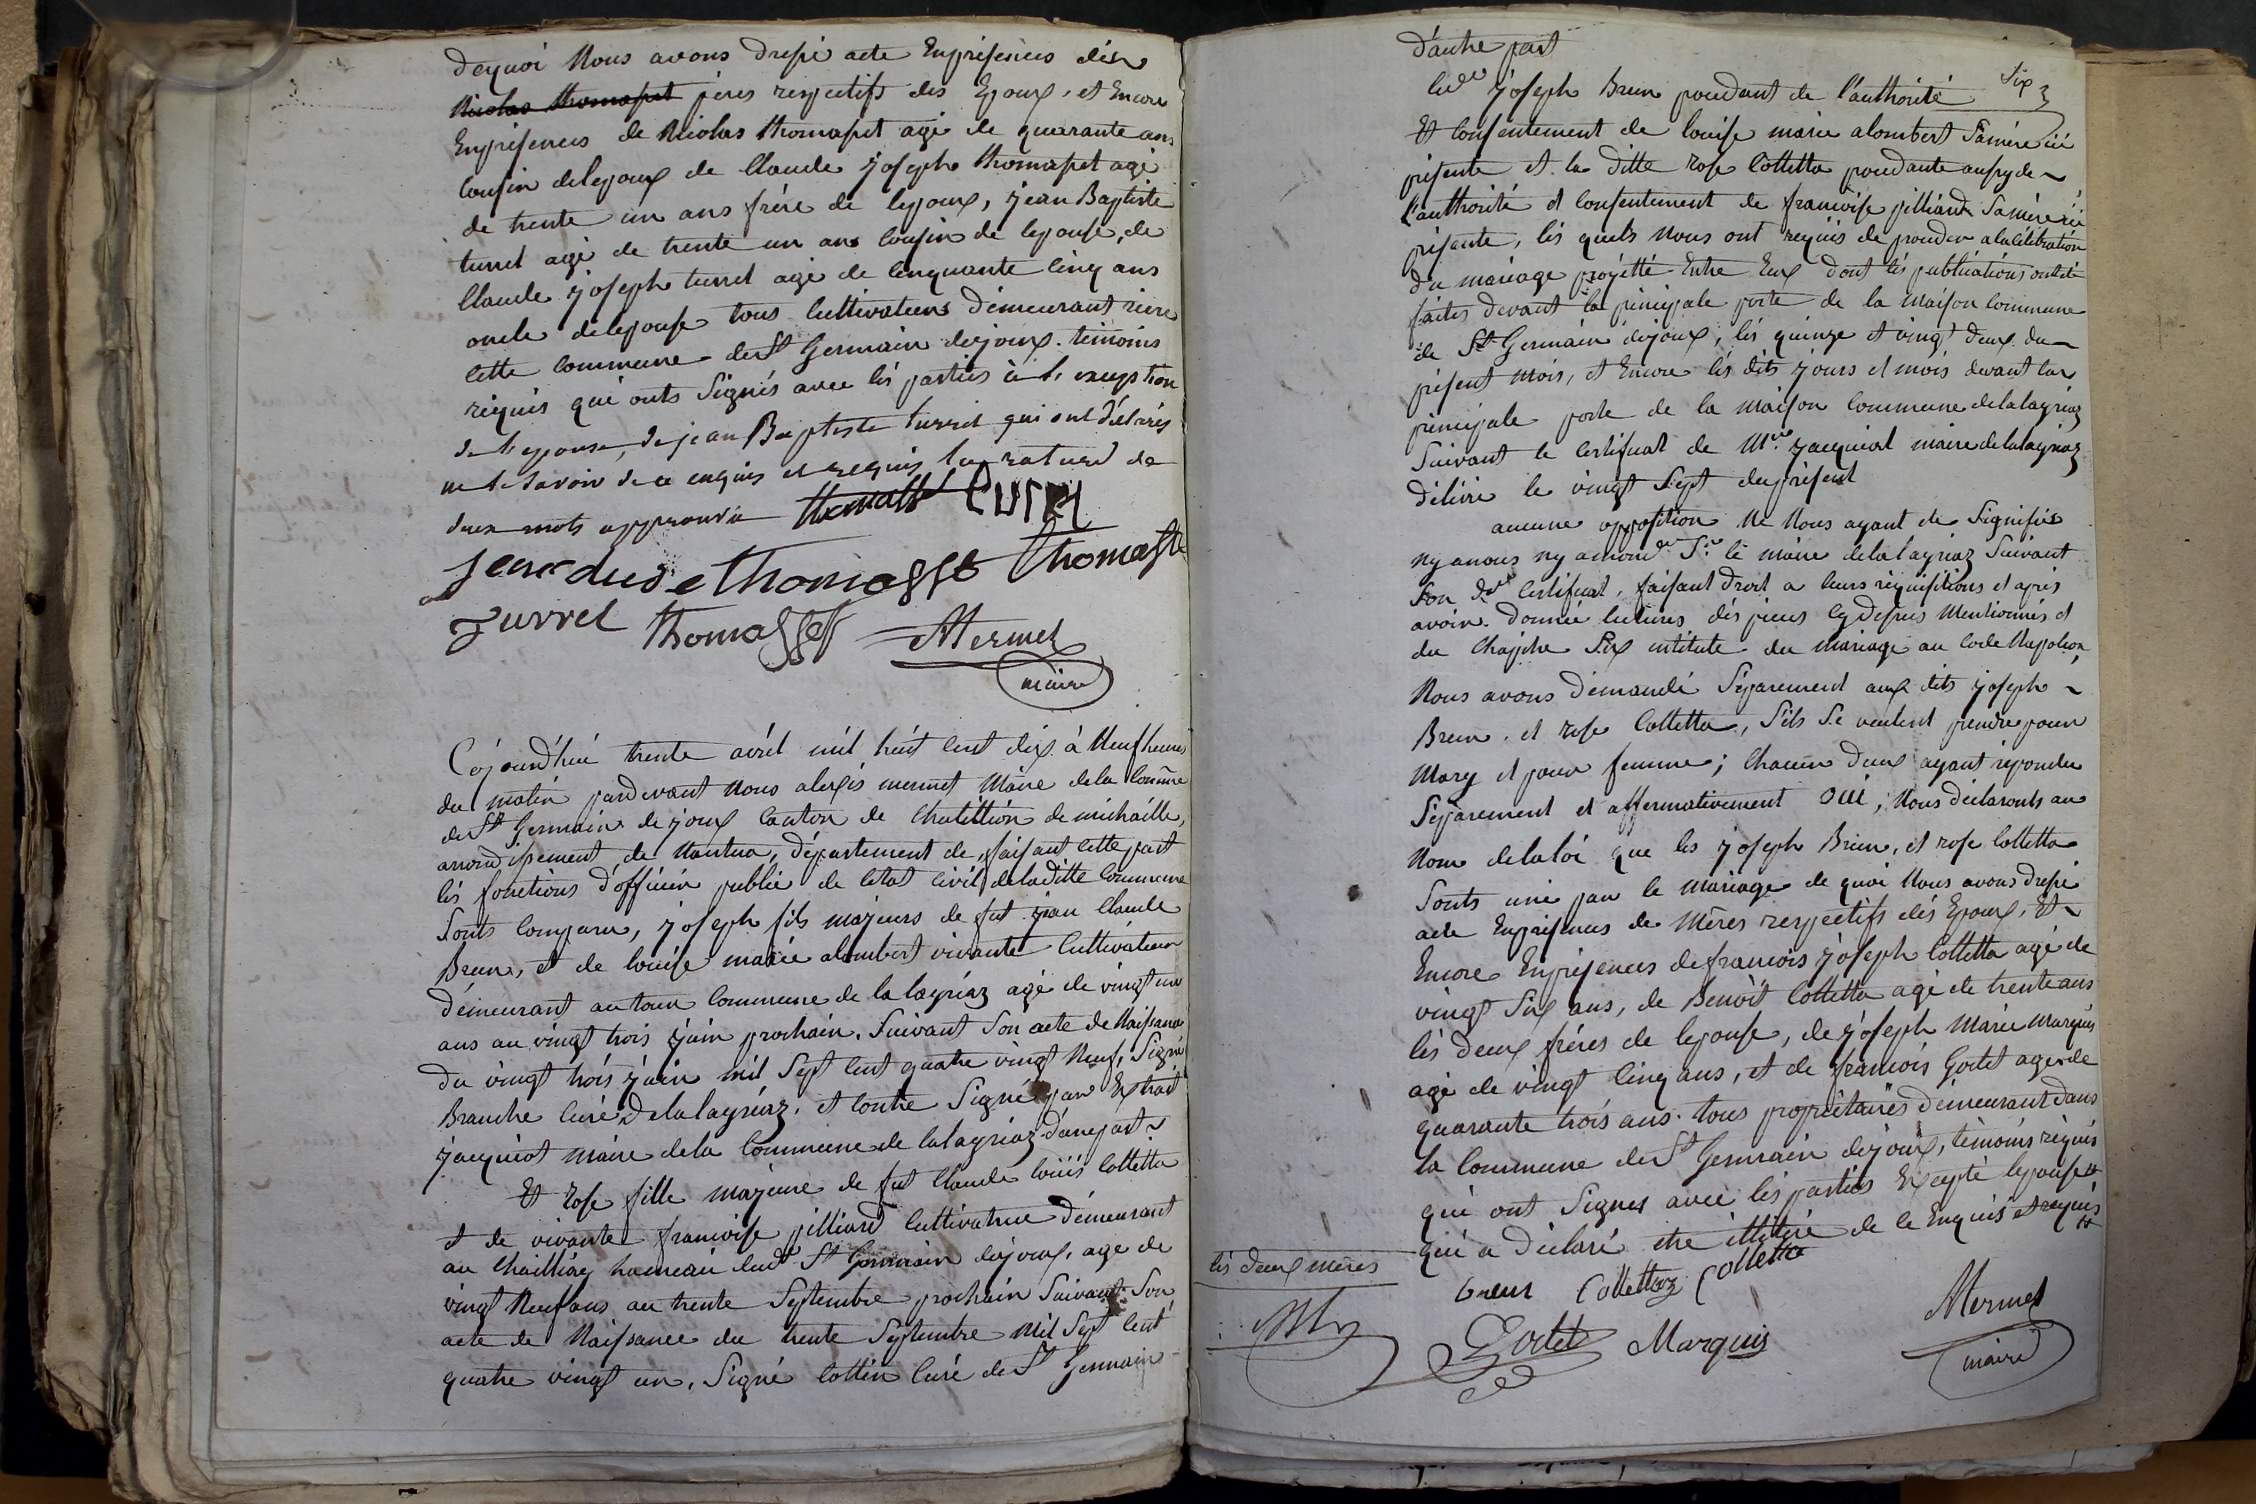 dequoi Nous avons dressé acte Enprésences dés
Nicolas thomasset péres respectifs des Epoux, et Encore
Enprésences de Nicolas thomasset agé de quarante ans
Cousin delepoux de Claude joseph thomasset agé
de trente un ans frére de lepoux, jean Baptiste
turrel agé de trente un ans Cousin de lepouse, de
Claude joseph turrel agé de Cinquante Cinq ans
oncle delepouse tous Cultivateurs démeurant riere
cette commune de St Germain dejoux témoins
réquis qui onts Signés avec lés parties à l'exception
de l'epouse, de jean Baptiste turrel qui ont déclarés
ne le Savoir de ce enquis et requis la rature de
deux mots approuvée
jean thomasset thomasset
Turrel thomasset AMermet
maire
Céjourd'hui trente avril mil huit Cent dix à Neuf heures
du matin pardevant Nous alexis mermet Maire dela Comune
de St Germain de joux Canton de Chatillion de michaille,
arrondissement de Nantua, département de, faisant cette part
lés fonctions d'officiér public de letat Civil deladitte Commune
Sonts Comparu, joseph fils majeurs de fut jean Claude
Brun, et de louise marie alombert vivante Cultivateur
démeurant au tour Commune de la layriaz agé de vingt un
ans au vingt trois juin prochain, Suivant Son acte de Naissance
du vingt trois juin mil Sept Cent quatre vingt Neuf, Signé
Branche Curé delalayriaz, et Contre Signé par Extrait
jacquiot maire dela Commune de lalayriaz d'unepart
Et rose fille majeure de fut Claude loüis Colletta
et de vivante francoise pilliard Cultivatrice démeurant
au Chailliay hameau dudt St Germain dejoux, age de
vingt Neuf ans au trente Septembre prochain Suivant Son
acte de Naissance du trente Septembre Mil Sept Cent
quatre vingt un, Signé Cottin Curé de St Germain
d'autre part
Six
Ledt joseph Brun procedant de l'authorité
Et Consentement de louise marie alombert Samére ici
présente et la ditte rose Colletta procedante aussy de
l'authorité et Consentement de francoise pilliard Samére ici
présente, lés quels Nous ont requis de proceder alacélébration
du mariage projetté Entre Eux dont lés publications ont été
faites devant la principale porte de la Maison Commune
de St Germain dejoux, lés quinze et vingt deux du
présent Mois, et Encore lés dits jours et mois devant la
principale porte de la Maison Commune delalayriaz
Suivant le Certificat de Mr jacquiot maire delalayriaz
délivré le vingt Sept duprésent
aucune opposition Ne Nous ayant eté Signifiée
ny anous ny le maire delalayriaz Suivant
Son dt Certificat, faisant droit a leurs réquisitions et aprés
avoir donnée lectures dés pieces cy dessus Mentionnés et
du Chapitre Six intitulé du Mariage au Code Napoléon,
Nous avons démandé Séparement aux dits joseph
Brun et rose Colletta, S'ils Se veulent prendre pour
Mary et pour femme; Chacun d'eux ayant répondu
Séparement et affermativement oui, Nous déclaronts au
Nom delaloi que les joseph Brun, et rose Colletta
Sonts unié par le Mariage de quoi Nous avons dressé
acte Enprésences de Méres respectifs dés Epoux, Et
Encore Enprésences de francois joseph Colletta agé de
vingt Six ans, de Benoit Colletta agé de trente ans
lés deux fréres de lepouse, de joseph Marie Marquis
agé de vingt Cinq ans, et de francois Godet age de
quarante trois ans tous propriétaires démeurant dans
la Commune de St Germain dejoux, témoins réquis
qui ont Signes avec lés parties Excepté lepouse
qui a déclaré etre illitéré de ce Enquis et requis
lés deux méres
Brun Collettaz Colletta
Godet Marquis
AMermet
maire